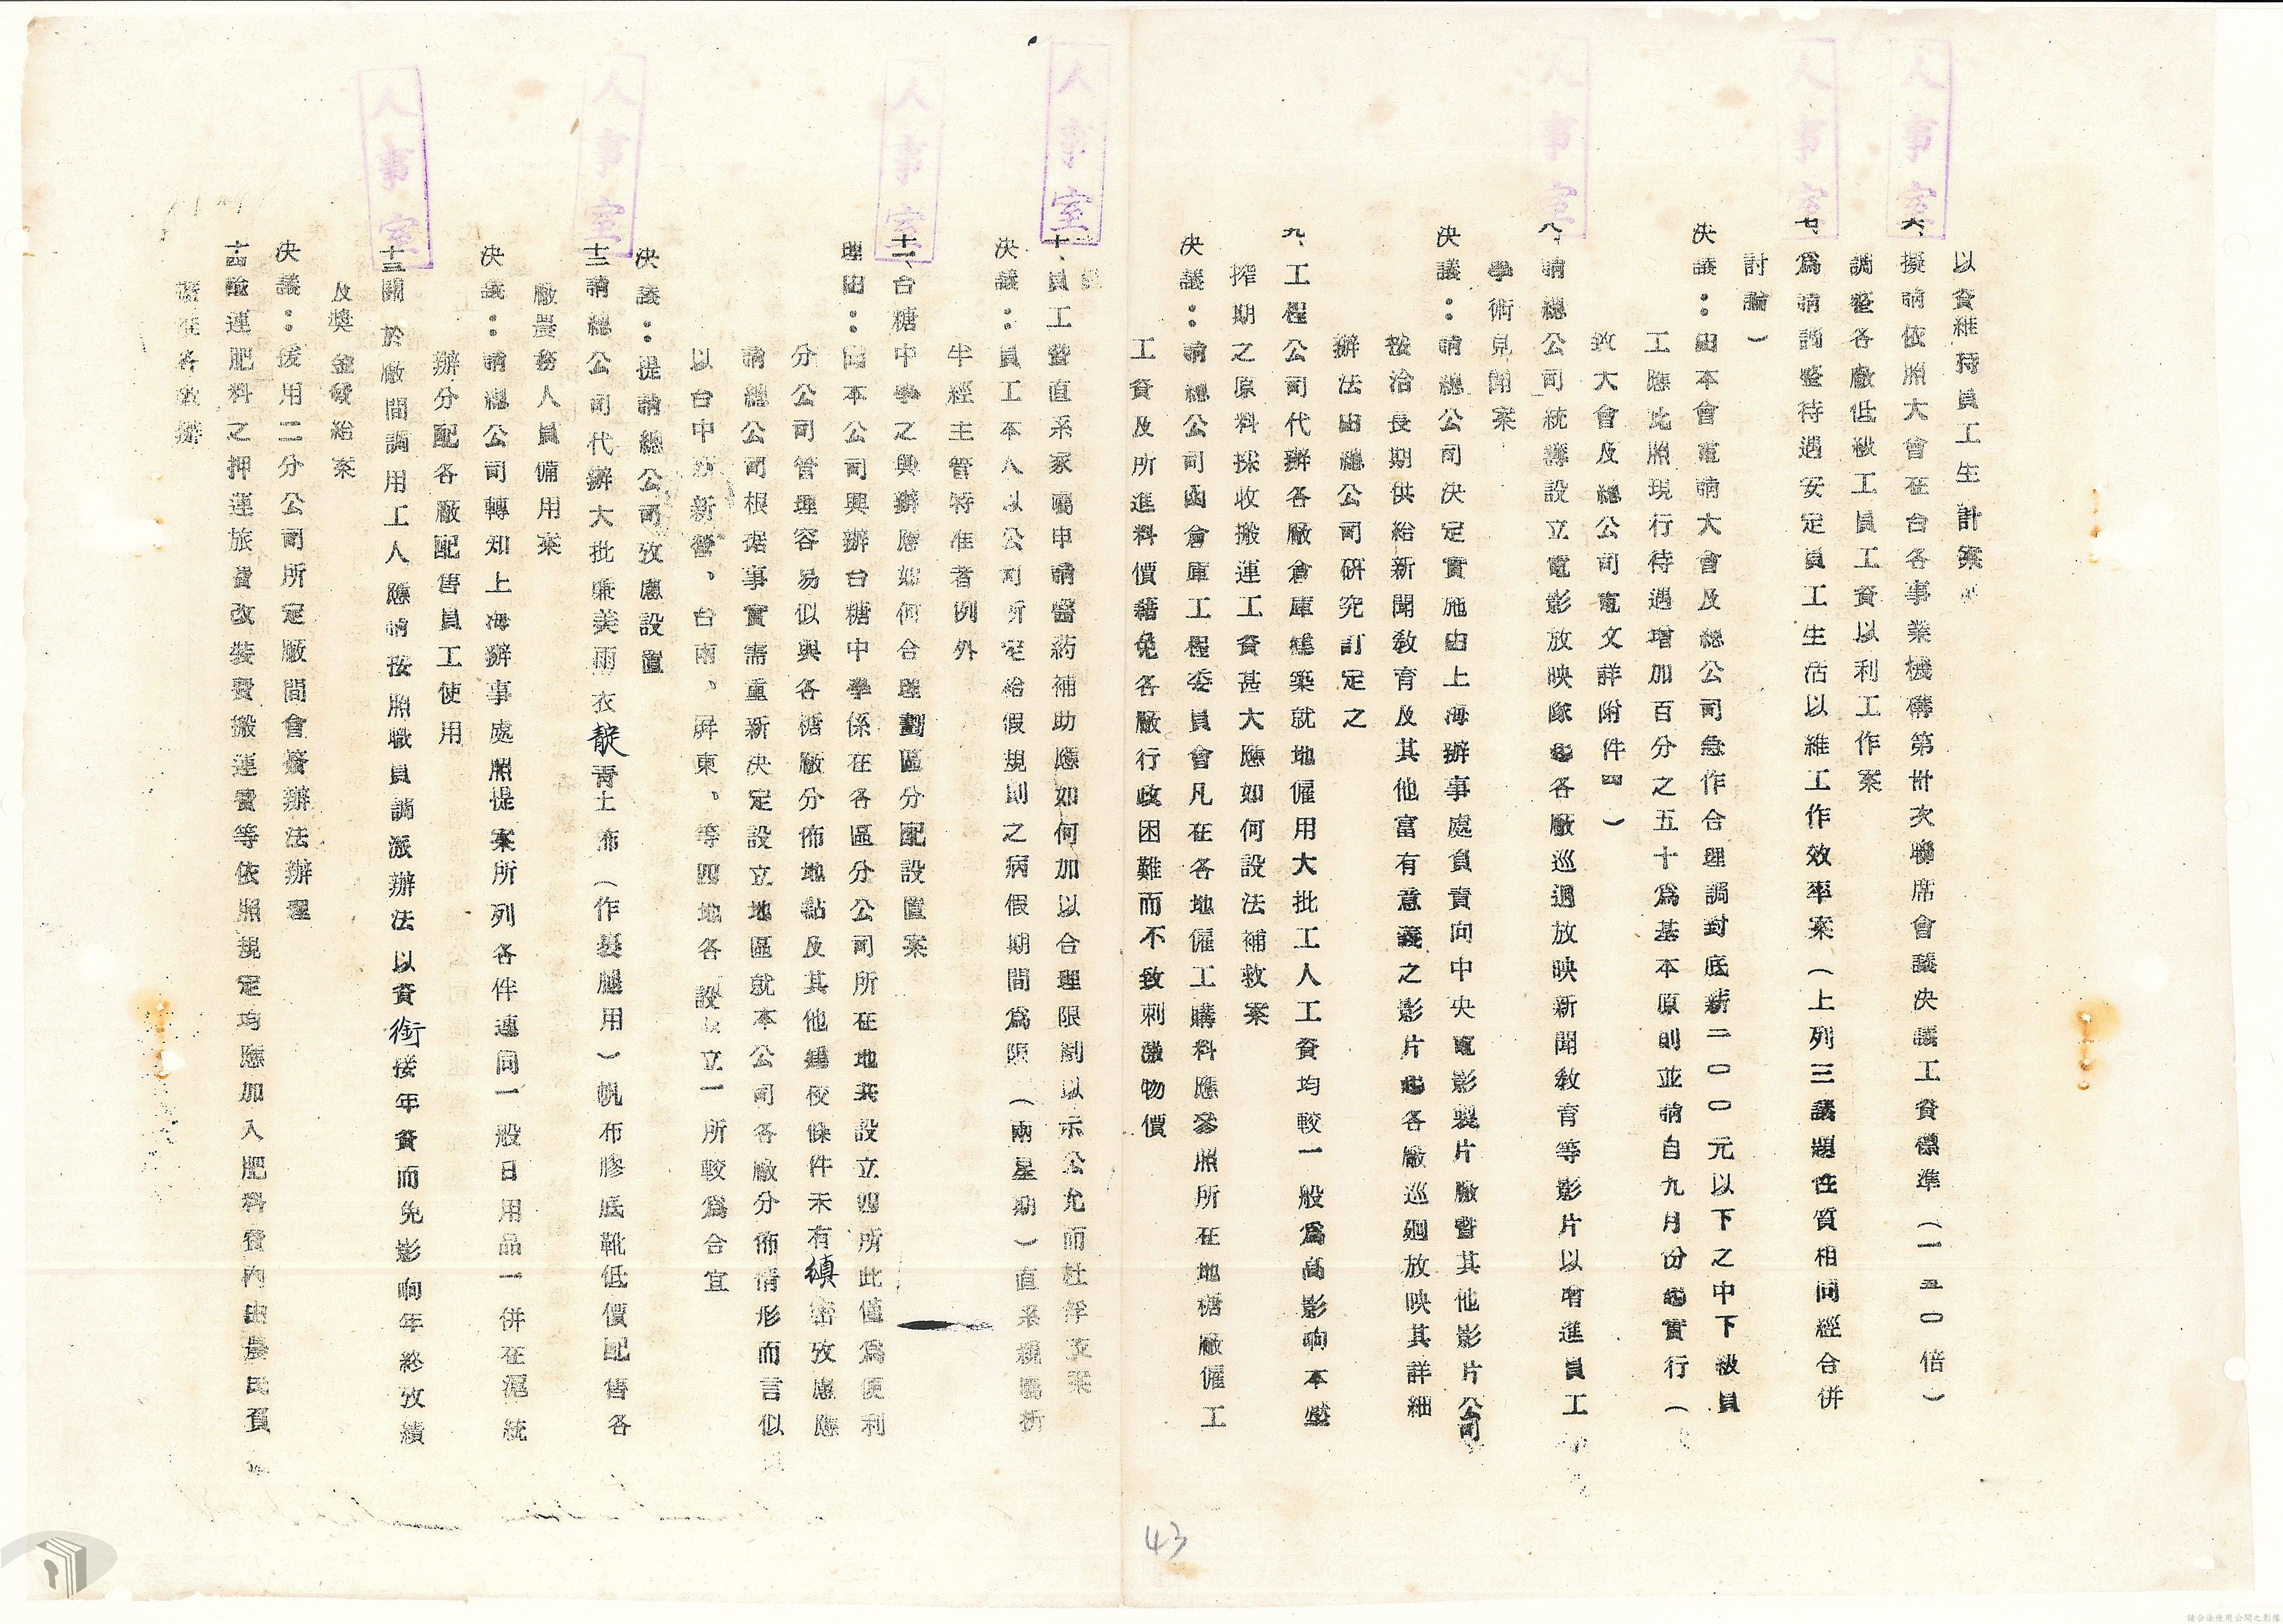 以資維持員工生計案
六、擬請依照大會在台各事業機構第卅次聯席會議決議工資標準（一五〇倍）
調整各廠低級工員工資以利工作案
七、爲請調整待遇安定員工生活以維工作效率案（上列三議題性質相同經合併
討論）
決議：由本會電請大會及總公司急作合理調對底薪二〇〇元以下之中下級員
工應比照現行待遇增加百分之五十爲基本原則並請自九月份起實行（
致大會及總公司電文詳附件四）
八、請總公司統籌設立電影放映隊起各廠巡迴放映新聞教育等影片以增進員工
學術見聞案
決議：請總公司決定實施由上海辦事處負責向中央電影製片廠暨其他影片公司
接洽長期供給新聞教育及其他富有意義之影片起各廠巡廻放映其詳細
辦法由總公司研究訂定之
九、工程公司代辦各廠倉庫建築就地僱用大批工人工資均較一般爲高影响本
搾期之原料採收搬運工資甚大應如何設法補救案
決議：請總公司函倉庫工程委員會凡在各地僱工購料應參照所在地糖廠僱工
工資及所進料價藉免各廠行政困難而不致刺激物價
十、員工暨直系家屬申請醫药補助應如何加以合理限制以示公允而杜浮支案
決議：員工本人以公司所定給假規則之病假期間爲限（兩星期）直系親屬折
半經主管特准者例外
十一、台糖中學之興辦應如何合理劃區分配設置案
理由：因本公司興辦台糖中學係在各區分公司所在地共設立四所此僅爲便利
分公司管理容易似與各糖廠分佈地點及其他建校條件未有縝密攷慮應
請總公司根据事實需重新決定設立地區就本公司各廠分佈情形而言似
以台中、新營、台南、屏東、等四地各設立一所較爲合宜
決議：提請總公司攷慮設置
十二請總公司代辦大批廉美雨衣靛青土布（作裹腿用）帆布膠底靴低價配售各
廠農務人員備用案
決議：請總公司轉知上海辦事處照提案所列各件連同一般日用品一併在滬統
辦分配各廠配售員工使用
十三關於廠間調用工人應請按照職員調派辦法以資銜接年資而免影响年終攷績
及獎金發給案
決議：援用二分公司所定廠間會簽辦法辦理
十四論運肥料之押運旅費改裝費搬運費等依照規定均應加入肥料費內由農民負